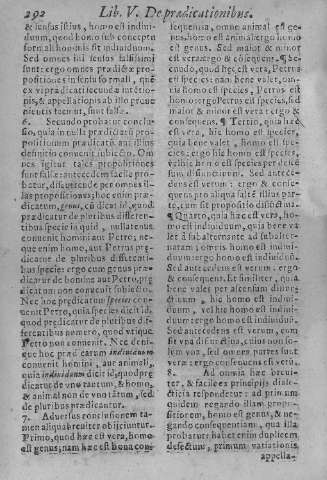 292 Lib. V. De prædicationibus.
& sensus istius, homo est indiui-
duum, quod homo sub conceptu
formali hominis sit indiuiduum.
Sed omnes isti sensus falsissimi
sunt: ergo omnes prædictæ pro-
positiones in sensu formali, quē
ex vi prædicati secundæ intētio-
nis, & appellationis ab illo proue
nientis faciut, sunt falsæ.
6. Secundo probatur conclu-
sio, quia in nulla prædictarū pro-
positionum prædicatū, aut illius
definitio conuenit subiecto. Om
nes igitur tales propositiones
sunt falsæ: antecedens facile pro-
batur, discurrendo per omnes il-
las propositiones; hoc enim præ-
dicatum, genus, cū dicat id, quod
prædicatur de pluribus differen-
tibus specie in quid, nullatenus
conuenit homini aut Petro; ne-
que enim homo, aut Petrus præ-
dicatur de pluribus differenti-
bus specie: ergo cum genus præ-
dicatur de homine aut Petro, præ
dicatum non conuenit subiecto.
Nec hoc prædicatum species con-
uenit Petro, quia species dicit id,
quod prædicatur de pluribus dif-
ferentibus numero, quod vtique
Petro non conuenit. Nec deni-
que hoc prædicatum indiuiduum
conuenit homini, aut animali,
quia indiuiduum dicit id, quod præ-
dicatur de vno tantum, & homo,
& animal non de vno tantum, sed
de pluribus prædicantur.
7. Aduersus conclusionem ta-
men aliqua breuiter obijciuntur.
Primo, quod hæc est vera, homo
est genus, nam hæc est bona con-
sequentia, omne animal est ge-
nus, homo est animal: ergo homo
est genus. Sed maior & minor
est vera: ergo & consequens. ¶ Se-
cundo, quod hæc est vera, Petrus
est species: nam bene valet, om-
nis homo est species, Petrus est
homo: ergo Petrus est species, sed
maior & minor est vera: ergo &
consequens. ¶ Tertio, quia hæc
est vera, hic homo est species,
quia bene valet, omnis homo
est species: ergo hic homo est species,
vel hic homo est species per de scen-
sum distributionis. Sed antece-
dens est verum: ergo & conse-
quens pro aliqua saltē illius par-
te, cum sit propositio disiunctiua.
¶ Quarto, quia hæc est vera, ho-
mo est indiuiduum, quia bene va
let à subalternante ad subalter-
natam; omnis homo est indiui-
duum: ergo homo est indiuiduū.
Sed antecedens est verum: ergo
& consequens. Et similiter, quia
bene valet per ascensum disiun-
ctiuum, hic homo est indiui-
duum, vel hic homo est indiui-
duum: ergo homo est indiuiduū.
Sed antecedens est verum, cum
sit vna disiunctiua, cuius non so-
lum vna, sed omnes partes sunt
veræ: ergo consequens est verū.
8. Ad omnia hæc breui-
ter, & facile ex principijs diale-
cticis respondetur: ad primum
quidem negando illam propo-
sitionem, homo est genus, & ne-
gando consequentiam, qua illa
probatur: habet enim duplicem
defectum, primum variationis
appella-